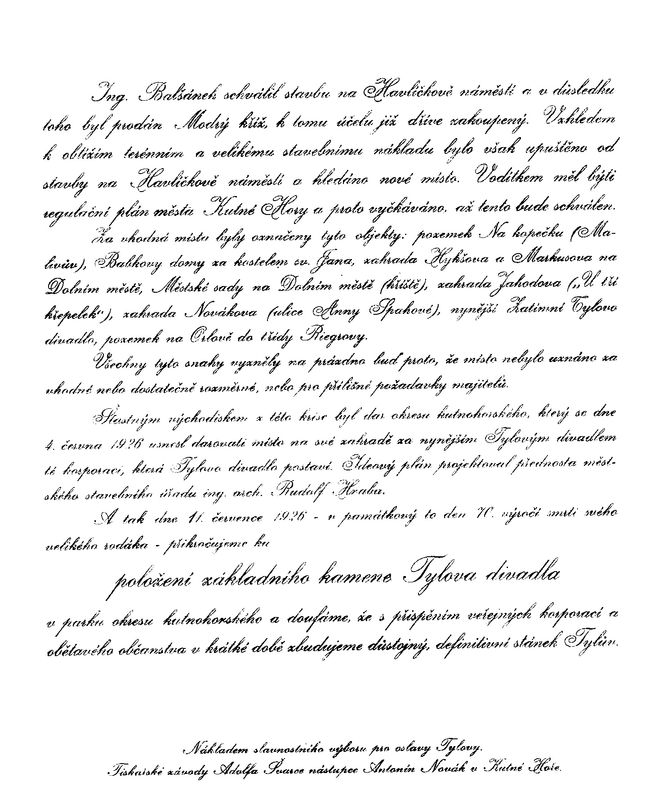 Ing. Balšánek schválil stavbu na Havlíčkově náměstí a v důsledku
toho byl prodán Modrý kříž, k tomu účelu již dříve zakoupený. Vzhledem
k obtížím terénním a velikému stavebnímu nákladu bylo však upuštěno od
stavby na Havlíčkově náměstí a hledáno nové místo. Vodítkem měl býti
regulační plán města Kutné Hory a proto vyčkáváno, až tento bude schválen.
Za vhodná místa byly označeny tyto objekty: pozemek Na kopečku (Ma-
livův), Balíkovy domy za kostelem sv. Jana, zahrada Hykšova a Markusova na
Dolním městě, Městské sady na Dolním městě (hřiště), zahrada Jahodova („U tří
křepelek"), zahrada Novákova (ulice Anny Spakové), nynější Zatimní Tylovo
divadlo, pozemek na Orlově do třídy Riegrovy.
Všechny tyto snahy vyzněly na prázdno buď proto, že místo nebylo uznáno za
vhodné nebo dostatečně rozměrné, nebo pro přílišné požadavky majitelů.
Šťastným východiskem z této krise byl dar okresu kutnohorského, který se dne
4. června 1926 usnesl darovati místo na své zahradě za nynějším Tylovým divadlem
té korporaci, která Tylovo divadlo postaví. Ideový plán projektoval přednosta měst-
ského stavebního úřadu ing. arch. Rudolf Hraba.
A tak dne 11. července 1926 - v památkový to den 70. výročí smrti svého
velikého rodáka - přikročujeme ku
položení základního kamene Tylova divadla
v parku okresu kutnohorského a doufáme, že s přispěním veřejných korporací a
obětavého občanstva v krátké době zbudujeme důstojný, definitivní stánek Tylův.
Nákladem slavnostního výboru pro oslavy Tylovy.
Tiskařské závody Adolfa Švarce nástupce Antonín Novák v Kutné Hoře.